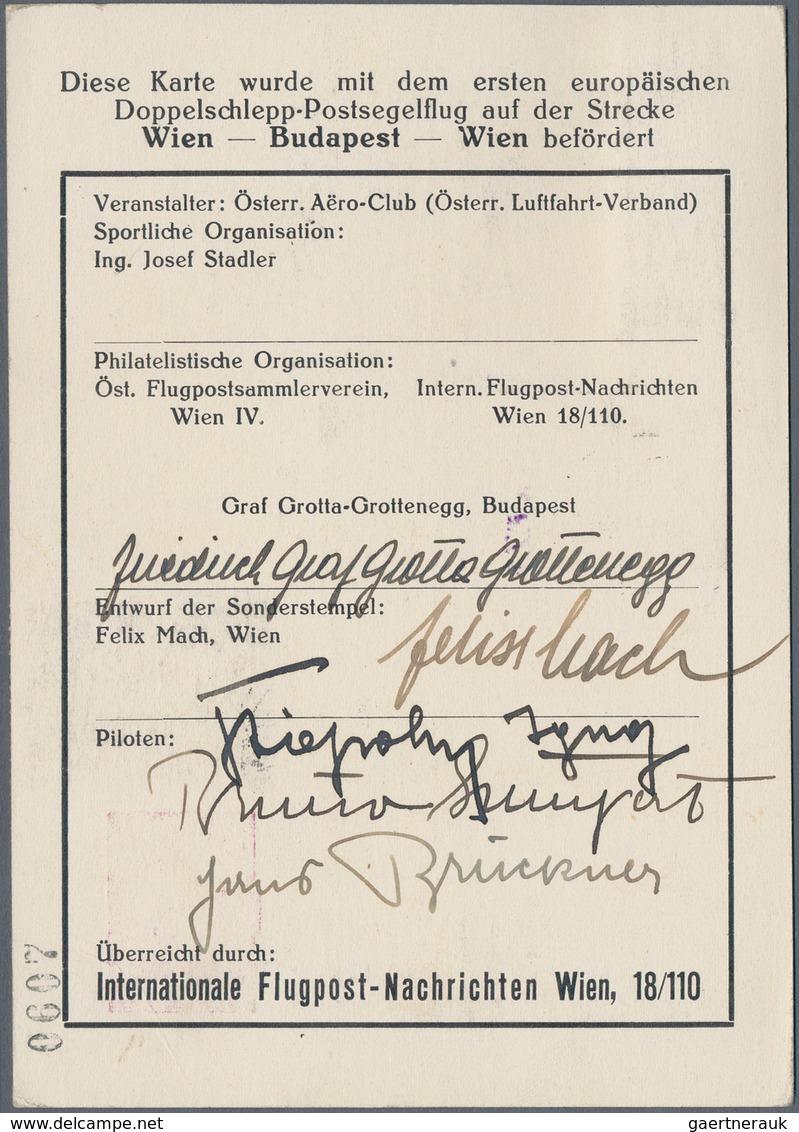 Diese Karte wurde mit dem ersten europäischen
Doppelschlepp-Postsegelflug auf der Strecke
Wien — Budapest — Wien befördert
Veranstalter: Österr. Aëro-Club (Österr. Luftfahrt-Verband)
Sportliche Organisation:
Ing. Josef Stadler
Philatelistische Organisation:
Öst. Flugpostsammlerverein, Intern. Flugpost-Nachrichten
Wien IV. Wien 18/110.
Graf Grotta-Grottenegg, Budapest
Friedrich Graf Grotta Grottenegg
Entwurf der Sonderstempel:
Felix Mach, Wien
Felix Mach
Piloten:
Bruno
Hans Brückner
Überreicht durch:
Internationale Flugpost-Nachrichten Wien, 18/110
0607
gaertnerauk